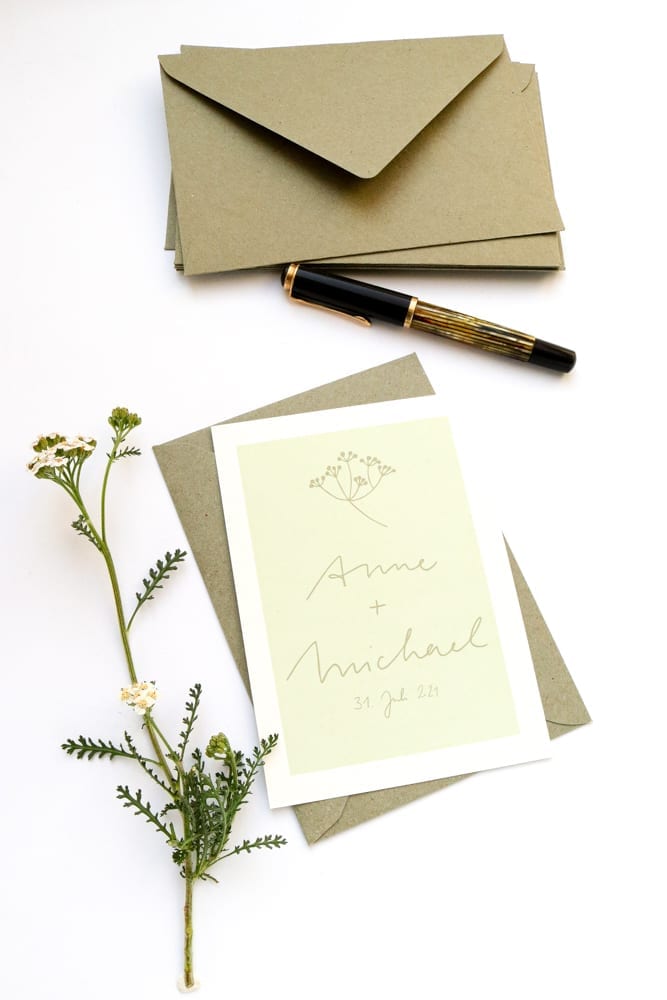 Anne
+
Michael
31. Juli 221